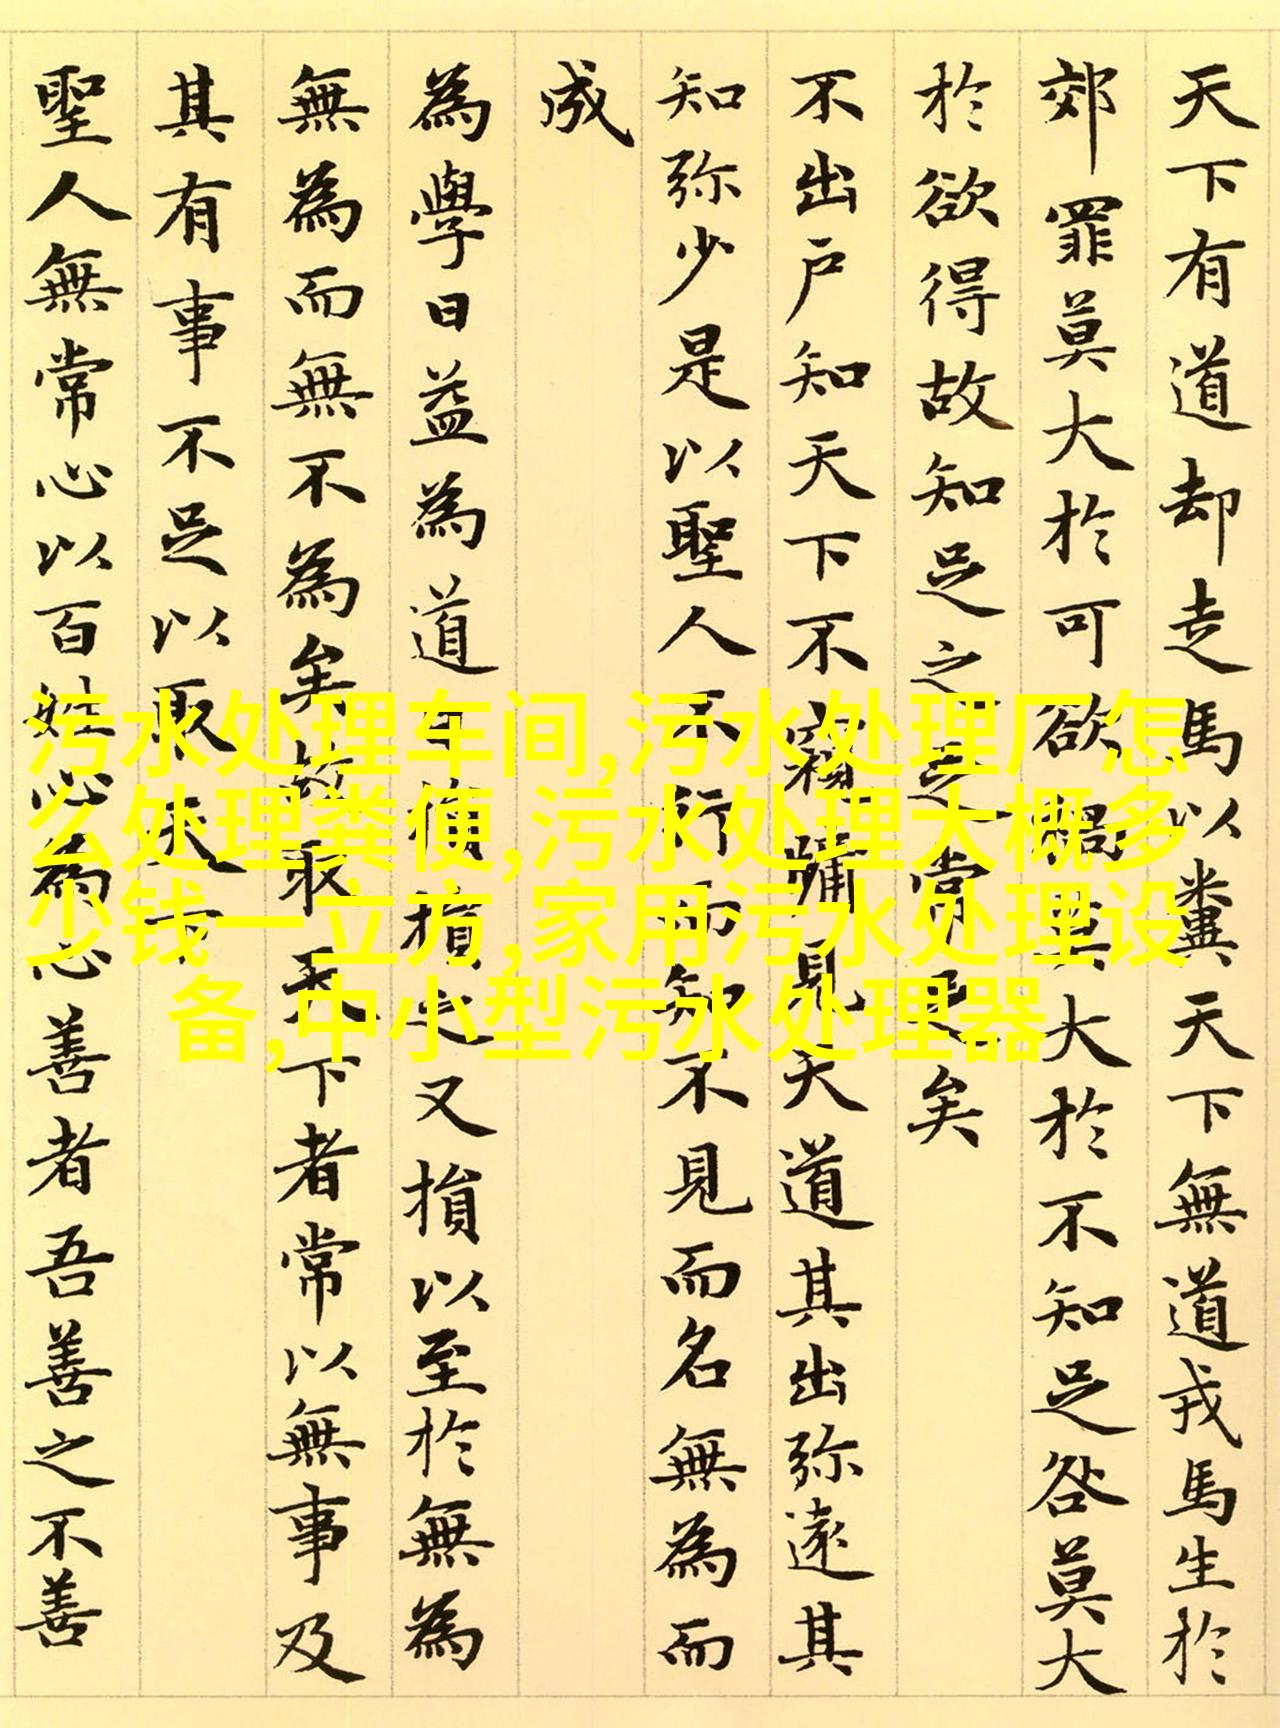 天下有道却走馬以糞天下無道戎馬生於
郊罪莫大於可欲禍莫大於不知足咎莫大
於欲得故知足之足常足矣
不出戶知天下不窺牖見天道其出弥遠其
知弥少是以聖人不行而知不見而名無為而
成
為學日益為道日損損之又損以至於無為
無為而無不為矣故取天下者常以無事及
其有事不足以取天下
聖人無常心以百姓心為心善者吾善之不善
污水处理车间,污水处理厂怎
么处理粪便,污水处理大概多
少钱一立方,家用污水处理设
备,中小型污水处理器